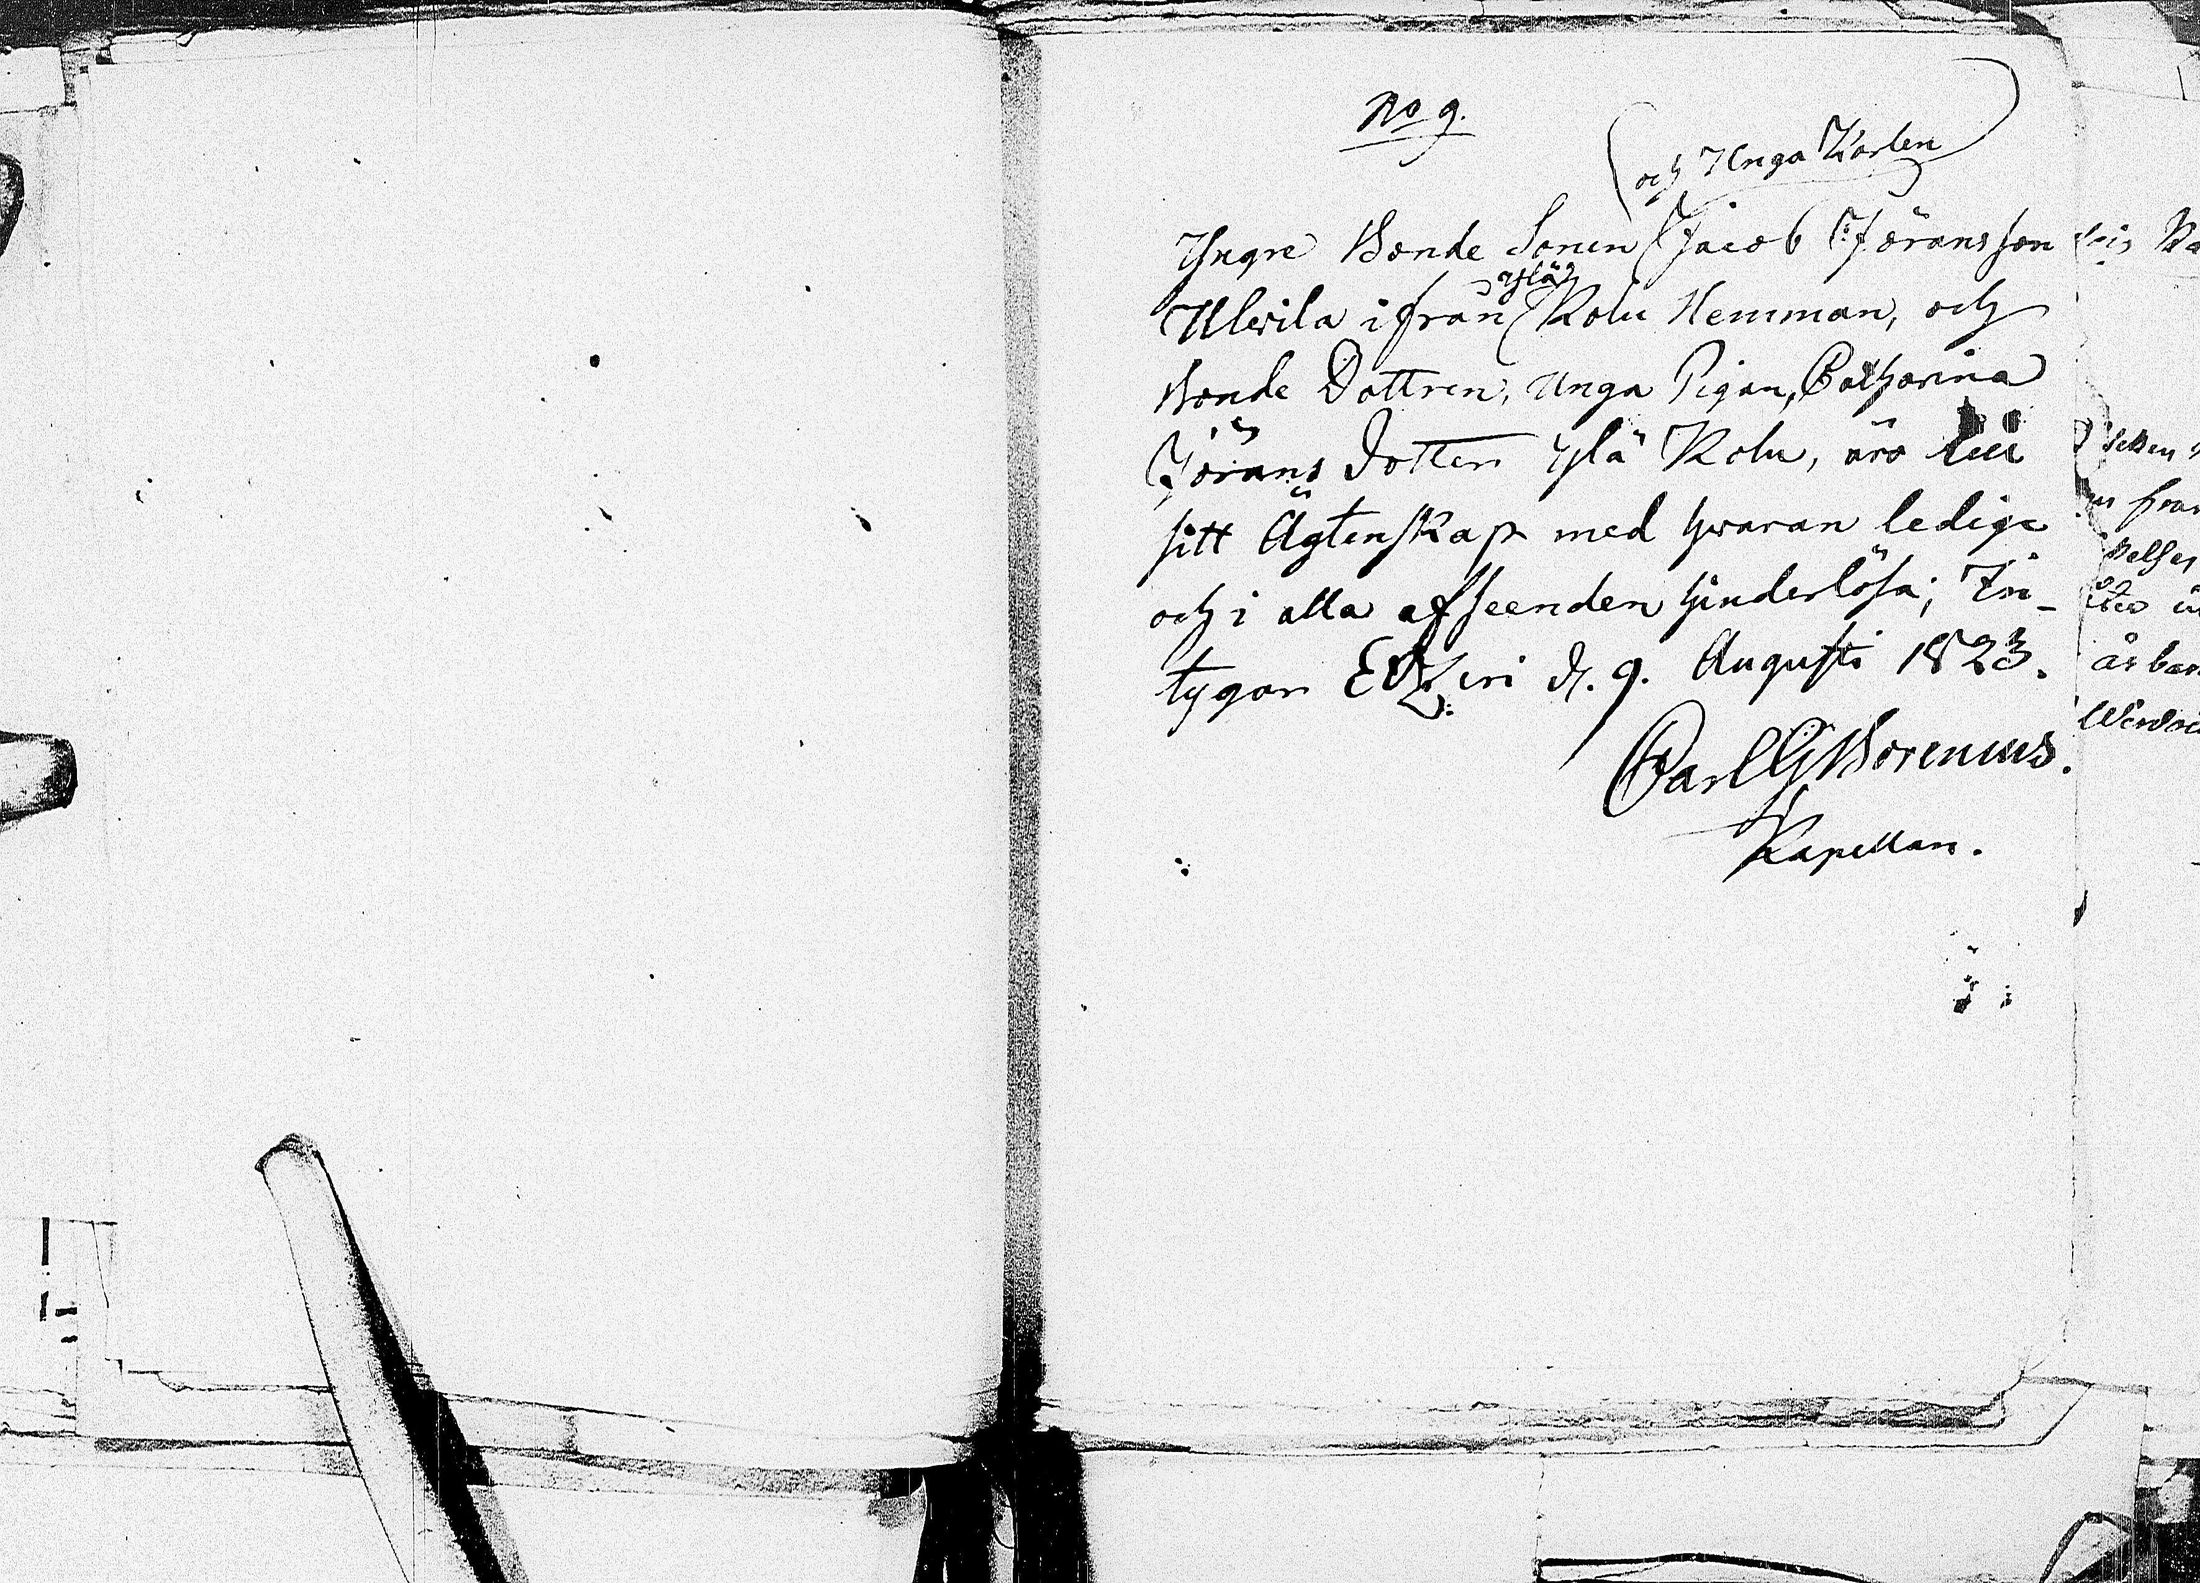 No 9.
och Unga Karlen
Yngre Bonde Sonen Jacob Jöransson
Ylä
Ulvila ifrån Kolu Hemman, och
Bonde Dottren, Unga Pigan, Catharina
Jörans Dotter Ylä Kolu, äro till
sitt Ägtenskap med hvaran ledige
och i alla afseenden hinderlösa; In-
tygar Etzeri d. 9. Augusti 1823.
Carl G Borenius.
Kapellan.